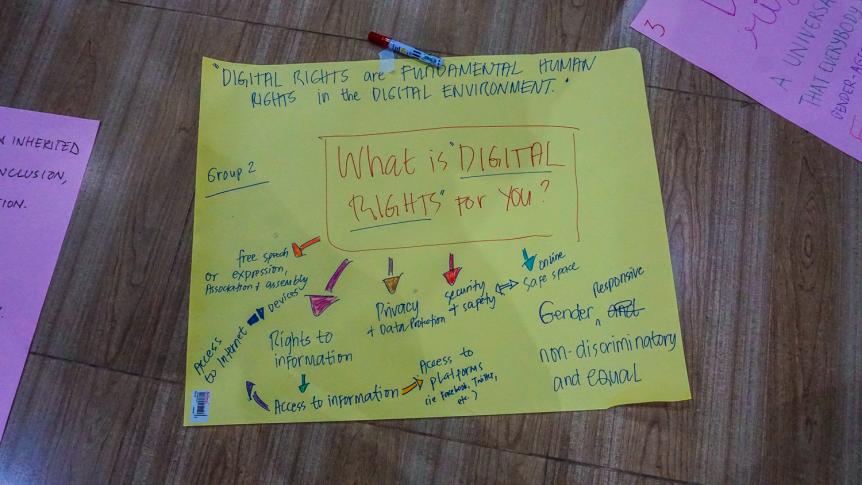 "DIGITAL RIGHTS are FUNDAMENTAL HUMAN
RIGHTS in the DIGITAL ENVIRONMENT."
Group 2
What is "DIGITAL
RIGHTS" for you?
free speech
or expression,
Association + assembly
Devices
Access
to Internet
Rights to
information
Access to information
Access to
platforms
(ie Facebook, Twitter,
etc.)
Privacy
+ Data Protection
security
+ safety
online
safe space
Responsive
Gender ^ and
non-discriminatory
and EQUAL
INHERITED
NCLUSION,
ION.
3
A UNIVERSA
THAT EVERYBODY
GENDER-